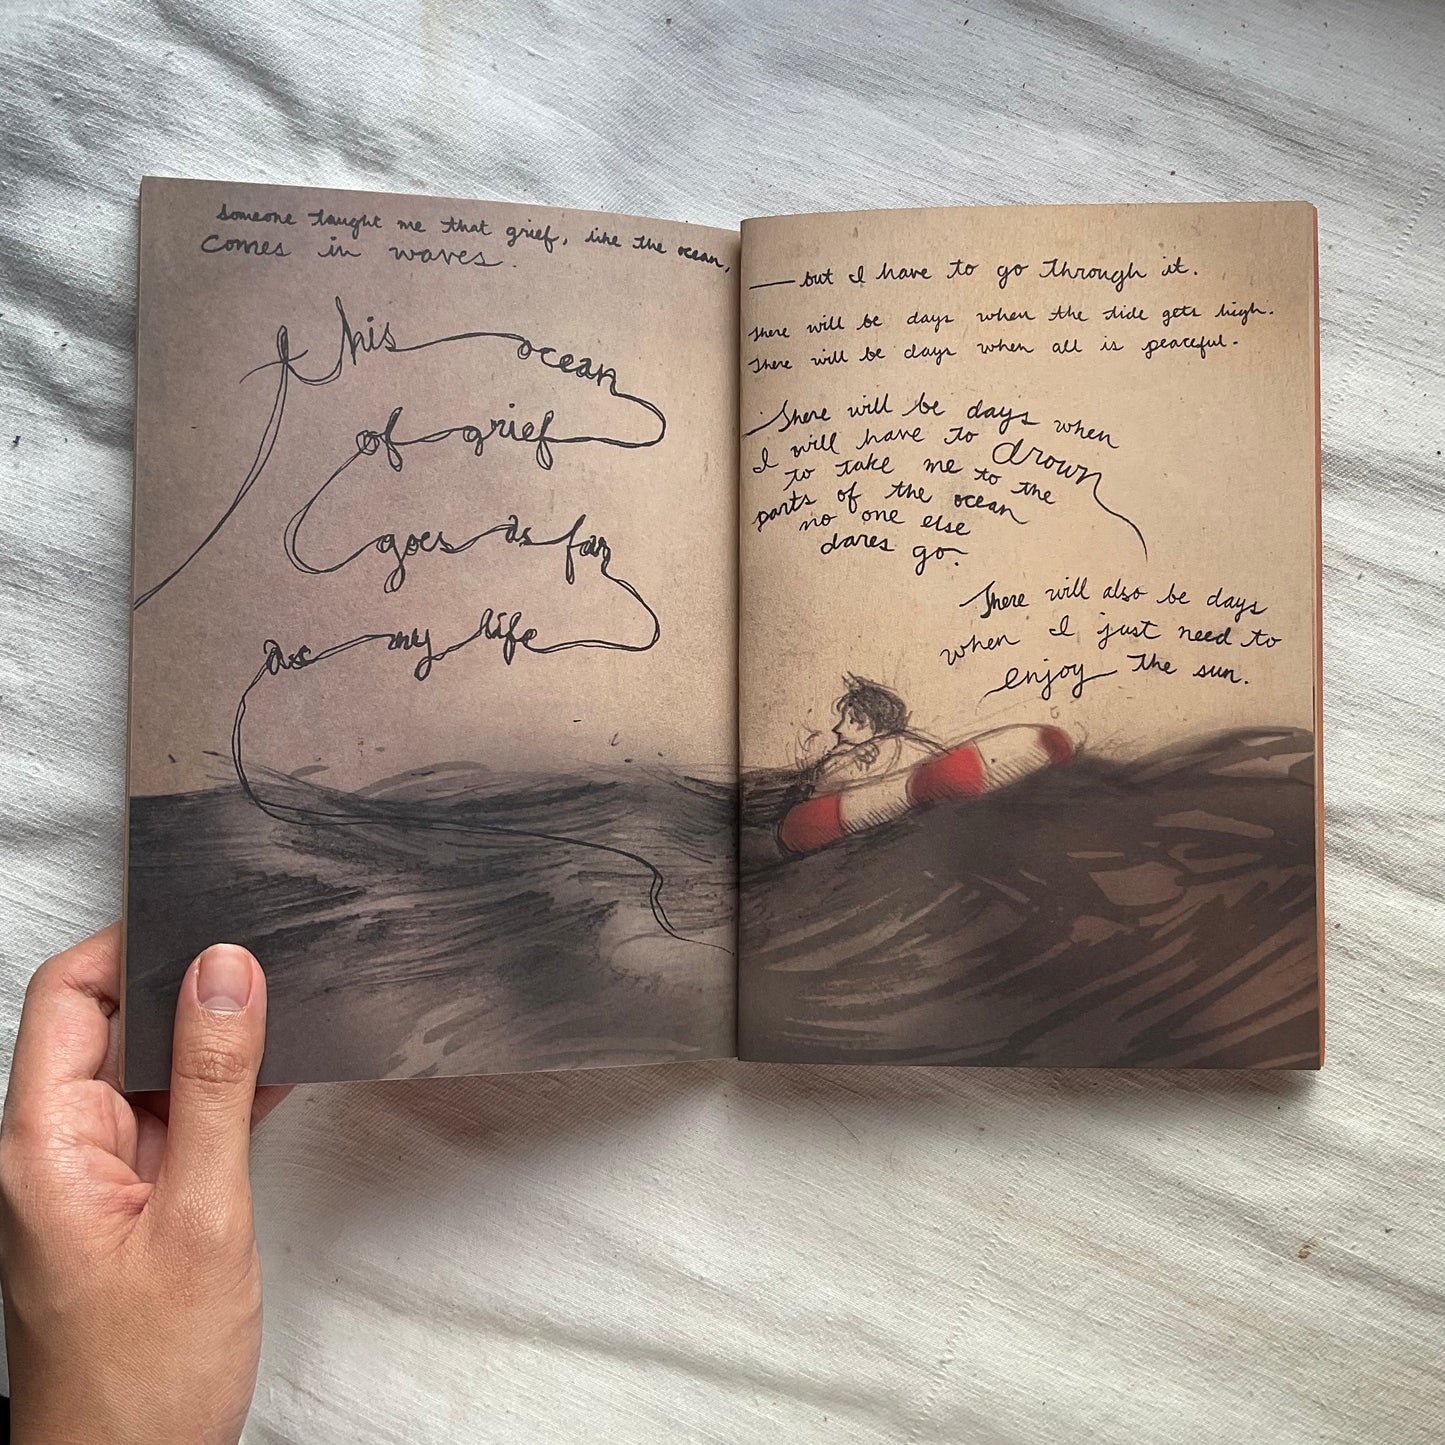 Someone taught me that grief, like the ocean,
comes in waves.
this ocean
of grief
goes as far
as my life
— but I have to go through it.
There will be days when the tide gets high.
There will be days when all is peaceful.
There will be days when
I will have to drown
to take me to the
parts of the ocean
no one else
dares go.
There will also be days
when I just need to
enjoy the sun.